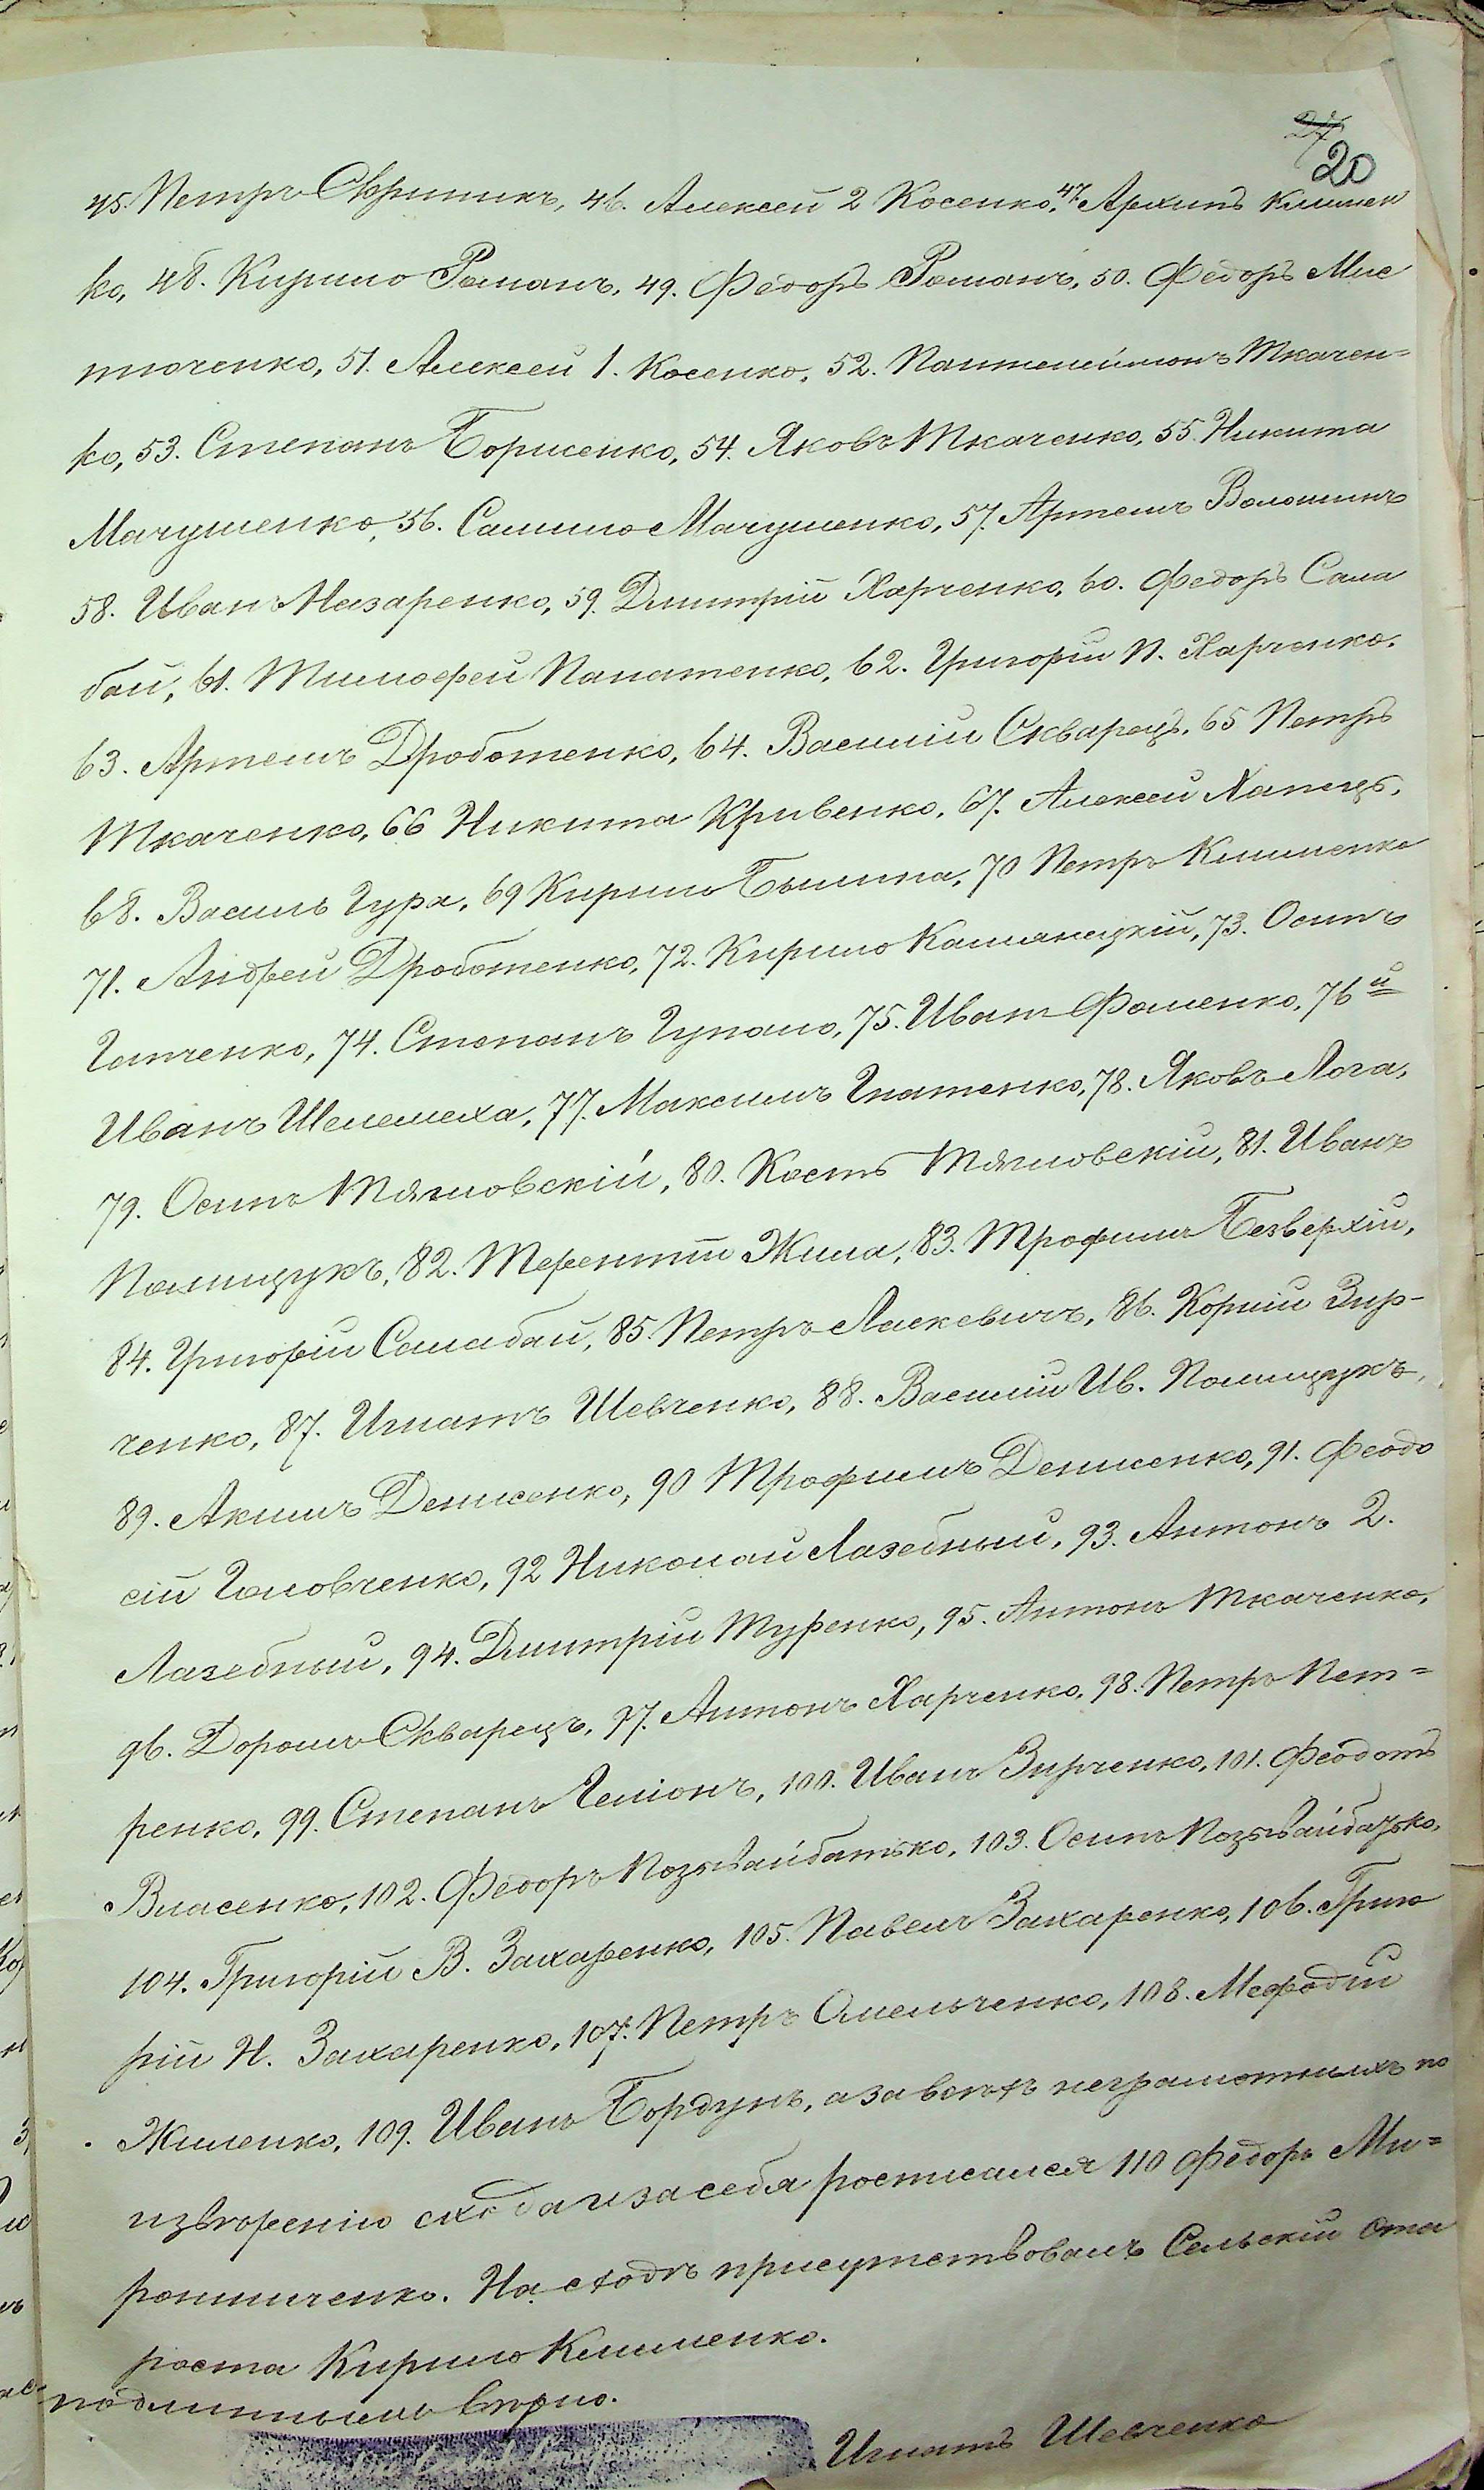 27
20
45. Петръ Скрипикъ, 46. Алексей 2 Косенко, 47. Архипъ Климен
ко, 48. Кирило Романъ, 49. Федоръ Романъ, 50. Федоръ Мис
тюченко, 51. Алексей 1. Косенко, 52. Пантелеймонъ Ткачен=
ко, 53. Степанъ Борисенко, 54. Яковъ Ткаченко, 55. Никита
Мачушенко, 56. Самило Мачушенко, 57. Артемъ Волошинъ
58. Иванъ Назаренко, 59. Дмитрій Харченко, 60. Федоръ Сала
бай, 61. Тимофей Панатенко, 62. Григорій П. Харченко.
63. Артемъ Дроботенко, 64. Василій Скварецъ, 65 Петръ
Ткаченко, 66 Никита Кривенко, 67. Алексей Хапецъ,
68. Василь Гура, 69 Кирило Былина, 70 Петръ Клименко
71. Андрей Дроботенко, 72. Кирило Камянецкій, 73. Осипъ
Гапченко, 74. Степанъ Гупало, 75. Иванъ Фоменко, 76й
Иванъ Шелемеха, 77. Максимъ Гнатенко, 78. Яковъ Лога,
79. Осипъ Тягловскій, 80. Кость Тягловскій, 81. Иванъ
Полищукъ, 82. Терентій Жила, 83. Трофимъ Безверхій,
84. Григорій Салабай, 85. Петръ Ласкевичъ, 86. Корній Зир-
ченко, 87. Игнатъ Шевченко, 88. Василій Ив. Полищукъ,
89. Акимъ Денисенко, 90 Трофимъ Денисенко, 91. Феодо
сій Головченко, 92 Николай Лазебный, 93. Антонъ 2.
Лазебный, 94. Дмитрій Туренко, 95. Антонъ Ткаченко,
96. Дорошъ Скварецъ, 97. Антонъ Харченко, 98. Петръ Пет=
ренко, 99. Степанъ Геліонъ, 100. Иванъ Зирченко, 101. Феодотъ
Власенко, 102. Федоръ Позывайбатько, 103. Осипъ Позывайбатько,
104. Григорій В. Захаренко, 105. Павелъ Захаренко, 106. Григо
рій Н. Захаренко, 107. Петръ Омельченко, 108. Мефодій
Жиленко, 109. Иванъ Бордунъ, а за всехъ неграмотныхъ по
изверенію схода и за себя росписался 110 Федоръ Ми=
рошниченко. На сходѣ присутствовалъ Сельскій Ста
роста Кирило Клименко.
подлиннымъ вѣрно.
Игнатъ Шевченко